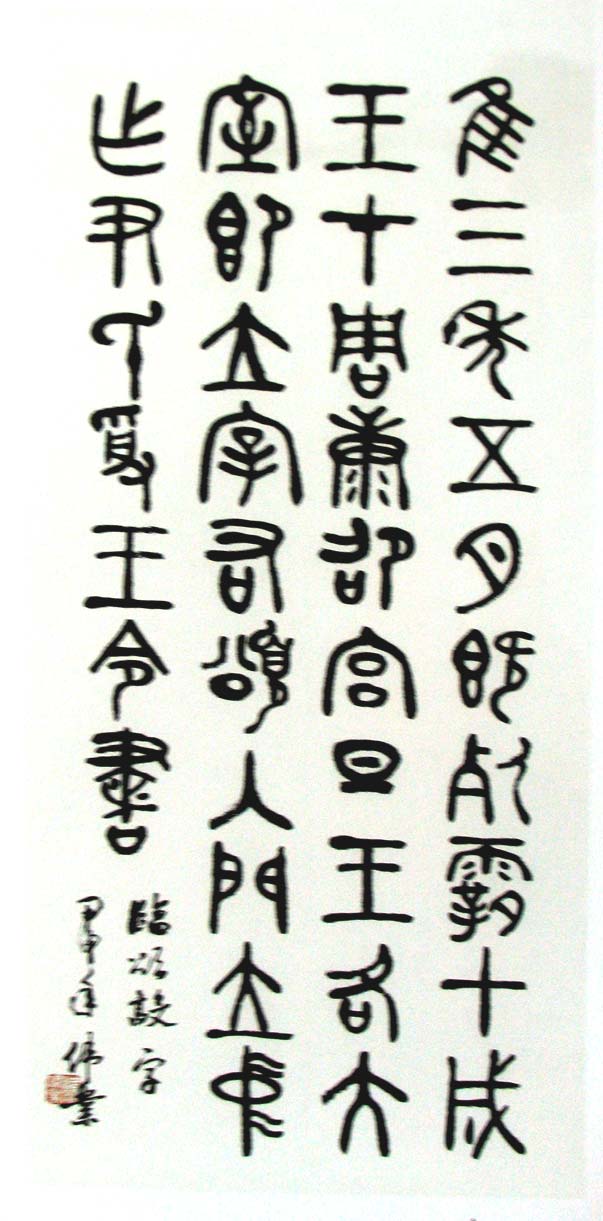 隹三年五月既死霸甲戌
王才周康卲宮旦王各大
室即立宰右頌入門立中
廷尹氏受王令書
臨頌𣪘字
甲申年偉業